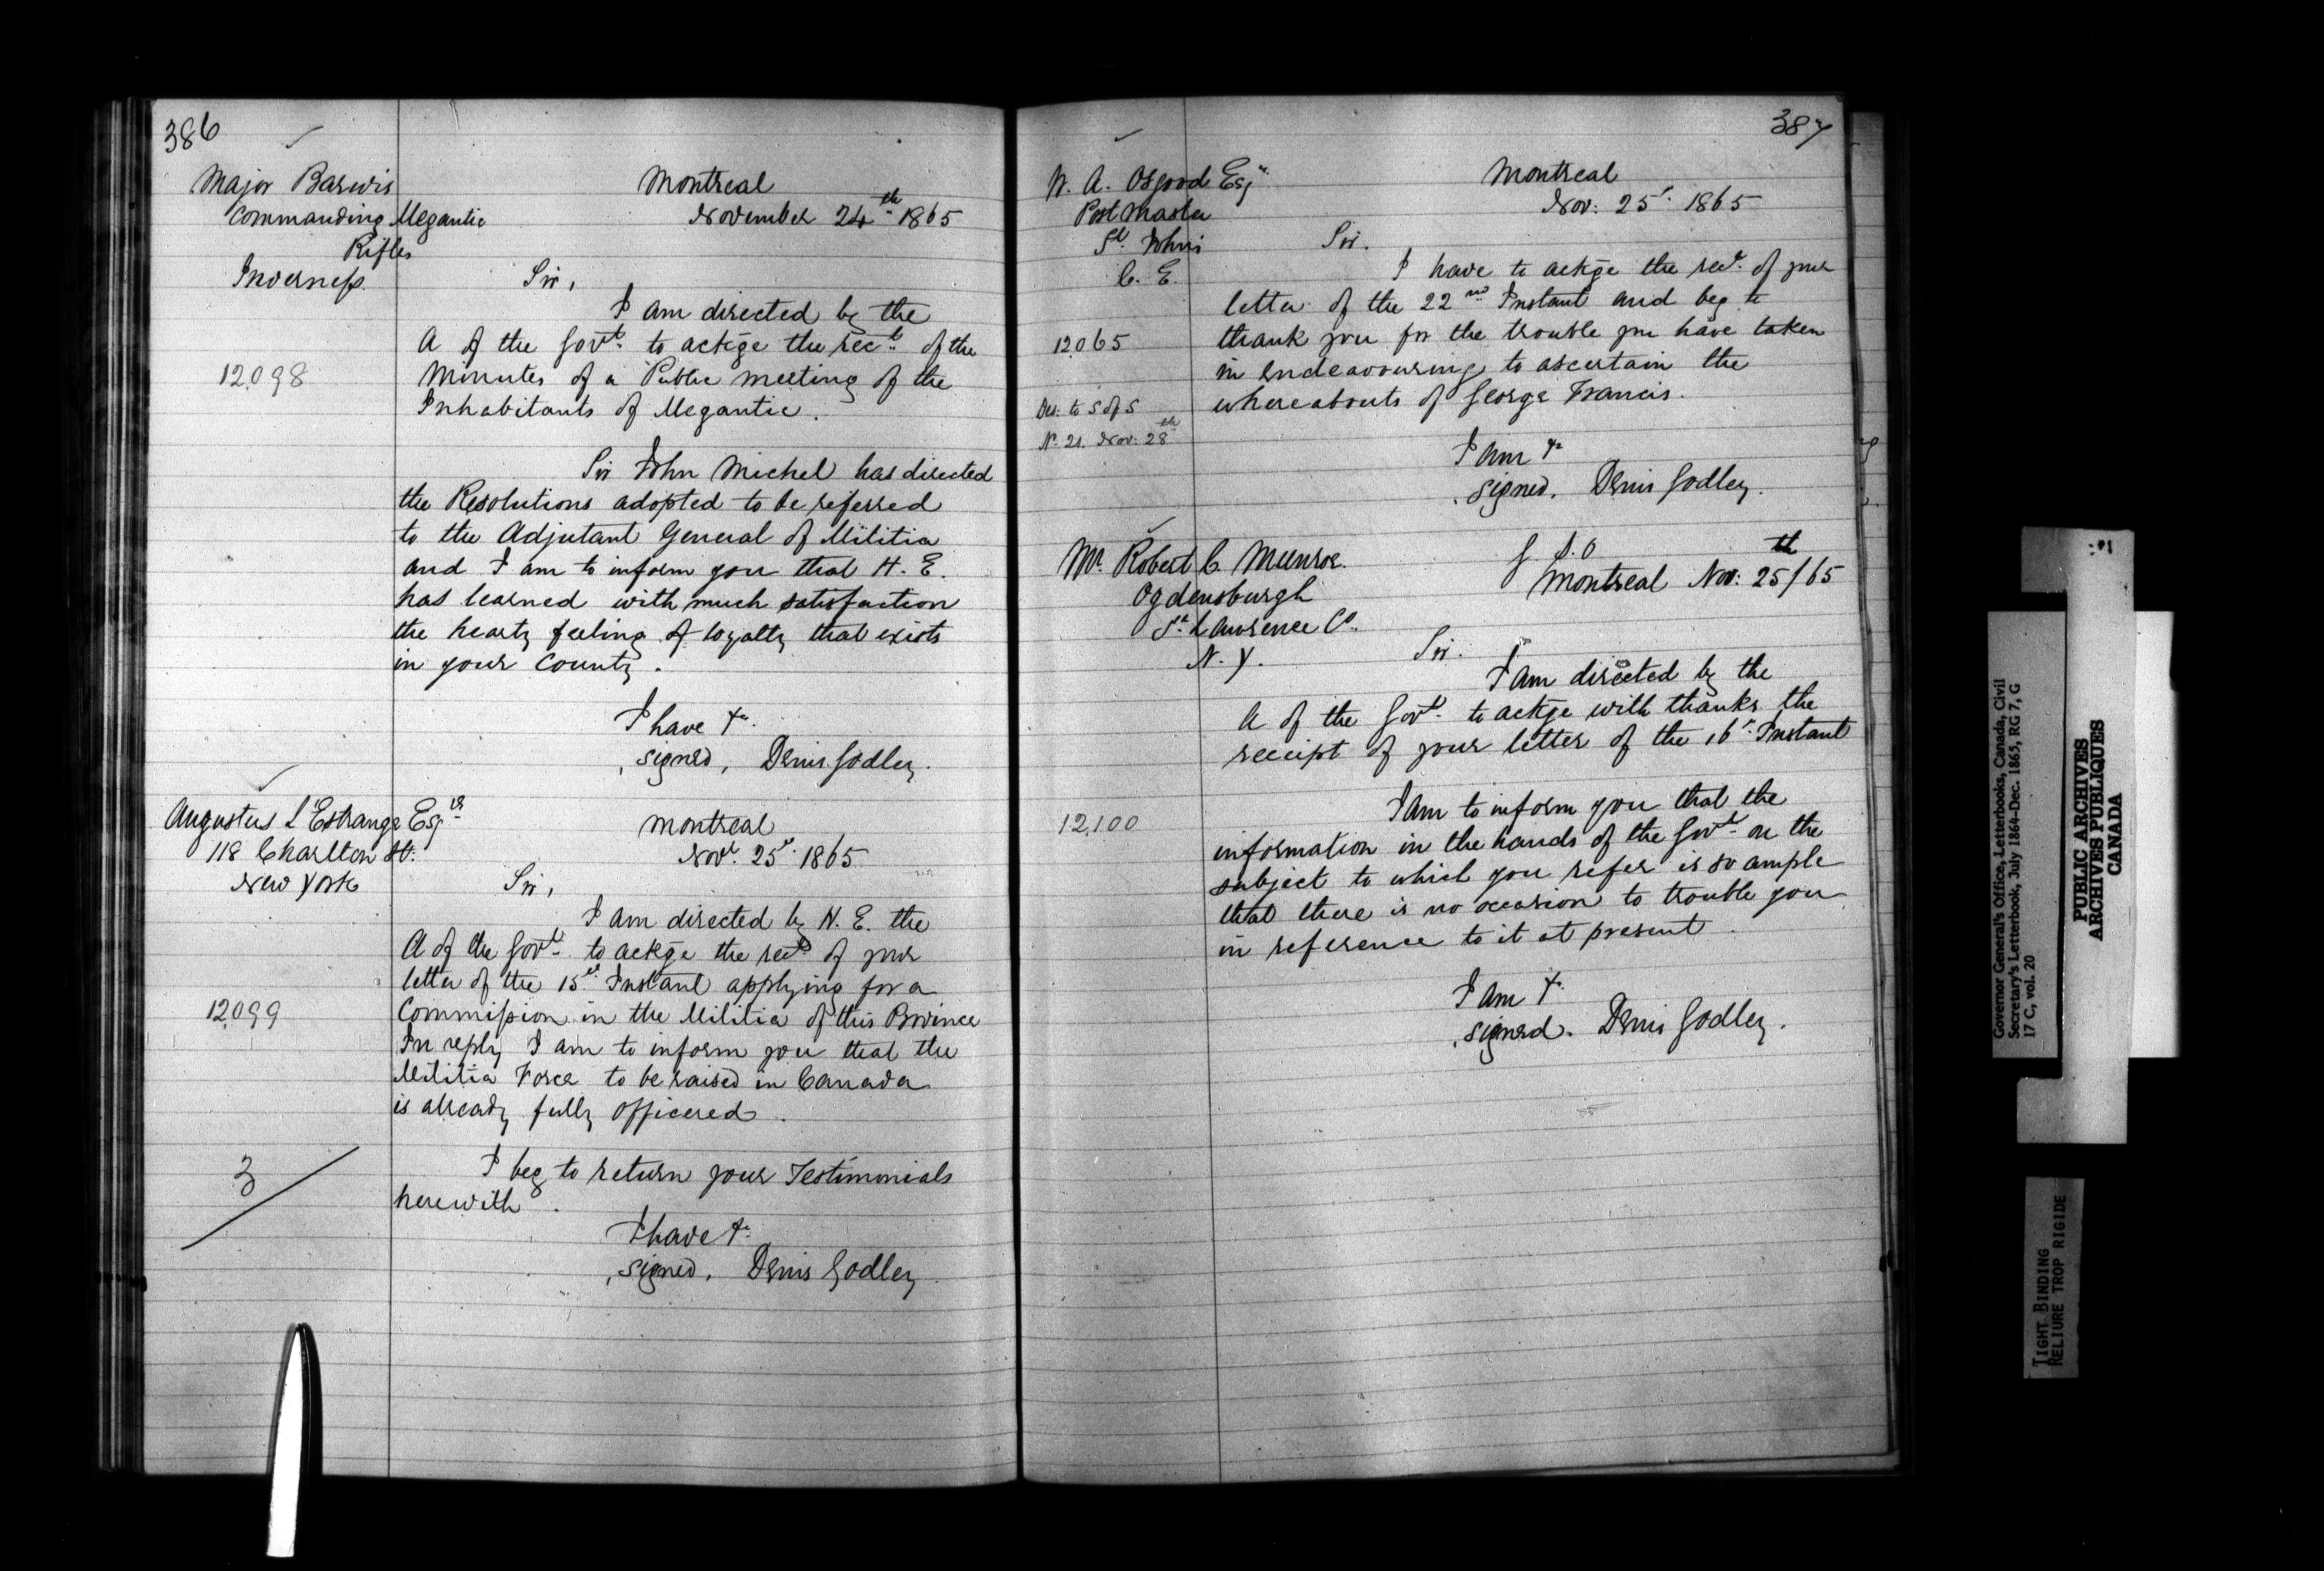 386
Major Barwis
Commanding Megantic
Rifles
Inverness.
Montreal
November 24th 1865
Sir,
I am directed by the
A of the Govt. to ackge the rect. of the
12,098
Minutes of a Public meeting of the
Inhabitants of Megantic.
Sir John Michel has directed
the Resolutions adopted to be referred
to the Adjutant General of Militia
and I am to inform you that H. E.
has learned with much satisfaction
the hearty feeling of loyalty that exists
in your County.
I have &c.
signed, Denis Godley.
Augustus L'Estrange Esqre
118 Charlton St.
New York
Montreal
Novr. 25th. 1865
Sir,
I am directed by H. E. the
A of the Govt. to ackge the rect of your
letter of the 15th Instant applying for a
12,099
Commission in the Militia of this Province
In reply I am to inform you that the
Militia Force to be raised in Canada
is already fully officered.
3
I beg to return your Testimonials
herewith.
I have &c.
signed, Denis Godley
387
W. A. Osgood Esqr.
Post Master
St. Johns
C. E.
Montreal
Nov: 25th. 1865
Sir.
I have to ackge the rect. of your
letter of the 22nd Instant and beg to
12,065
thank you for the trouble you have taken
in endeavouring to ascertain the
Des: to S of S
whereabouts of George Francis.
No. 21. Nov: 28th
I am &c
signed, Denis Godley.
Mr. Robert C. Munroe.
Ogdensburgh
St. Lawrence Co.
N. Y.
G. S. O
Montreal Nov: 25th/65
Sir.
I am directed by the
A of the Govt. to ackge with thanks the
receipt of your letter of the 16th. Instant
12,100
I am to inform you that the
information in the hands of the Govt. on the
subject to which you refer is so ample
that there is no occasion to trouble you
in reference to it at present.
I am &c.
signed. Denis Godley.
Governor General's Office, Letterbooks, Canada, Civil
Secretary's Letterbook, July 1864-Dec. 1865, RG 7, G
17 C, vol. 20
PUBLIC ARCHIVES
ARCHIVES PUBLIQUES
CANADA
TIGHT BINDING
RELIURE TROP RIGIDE